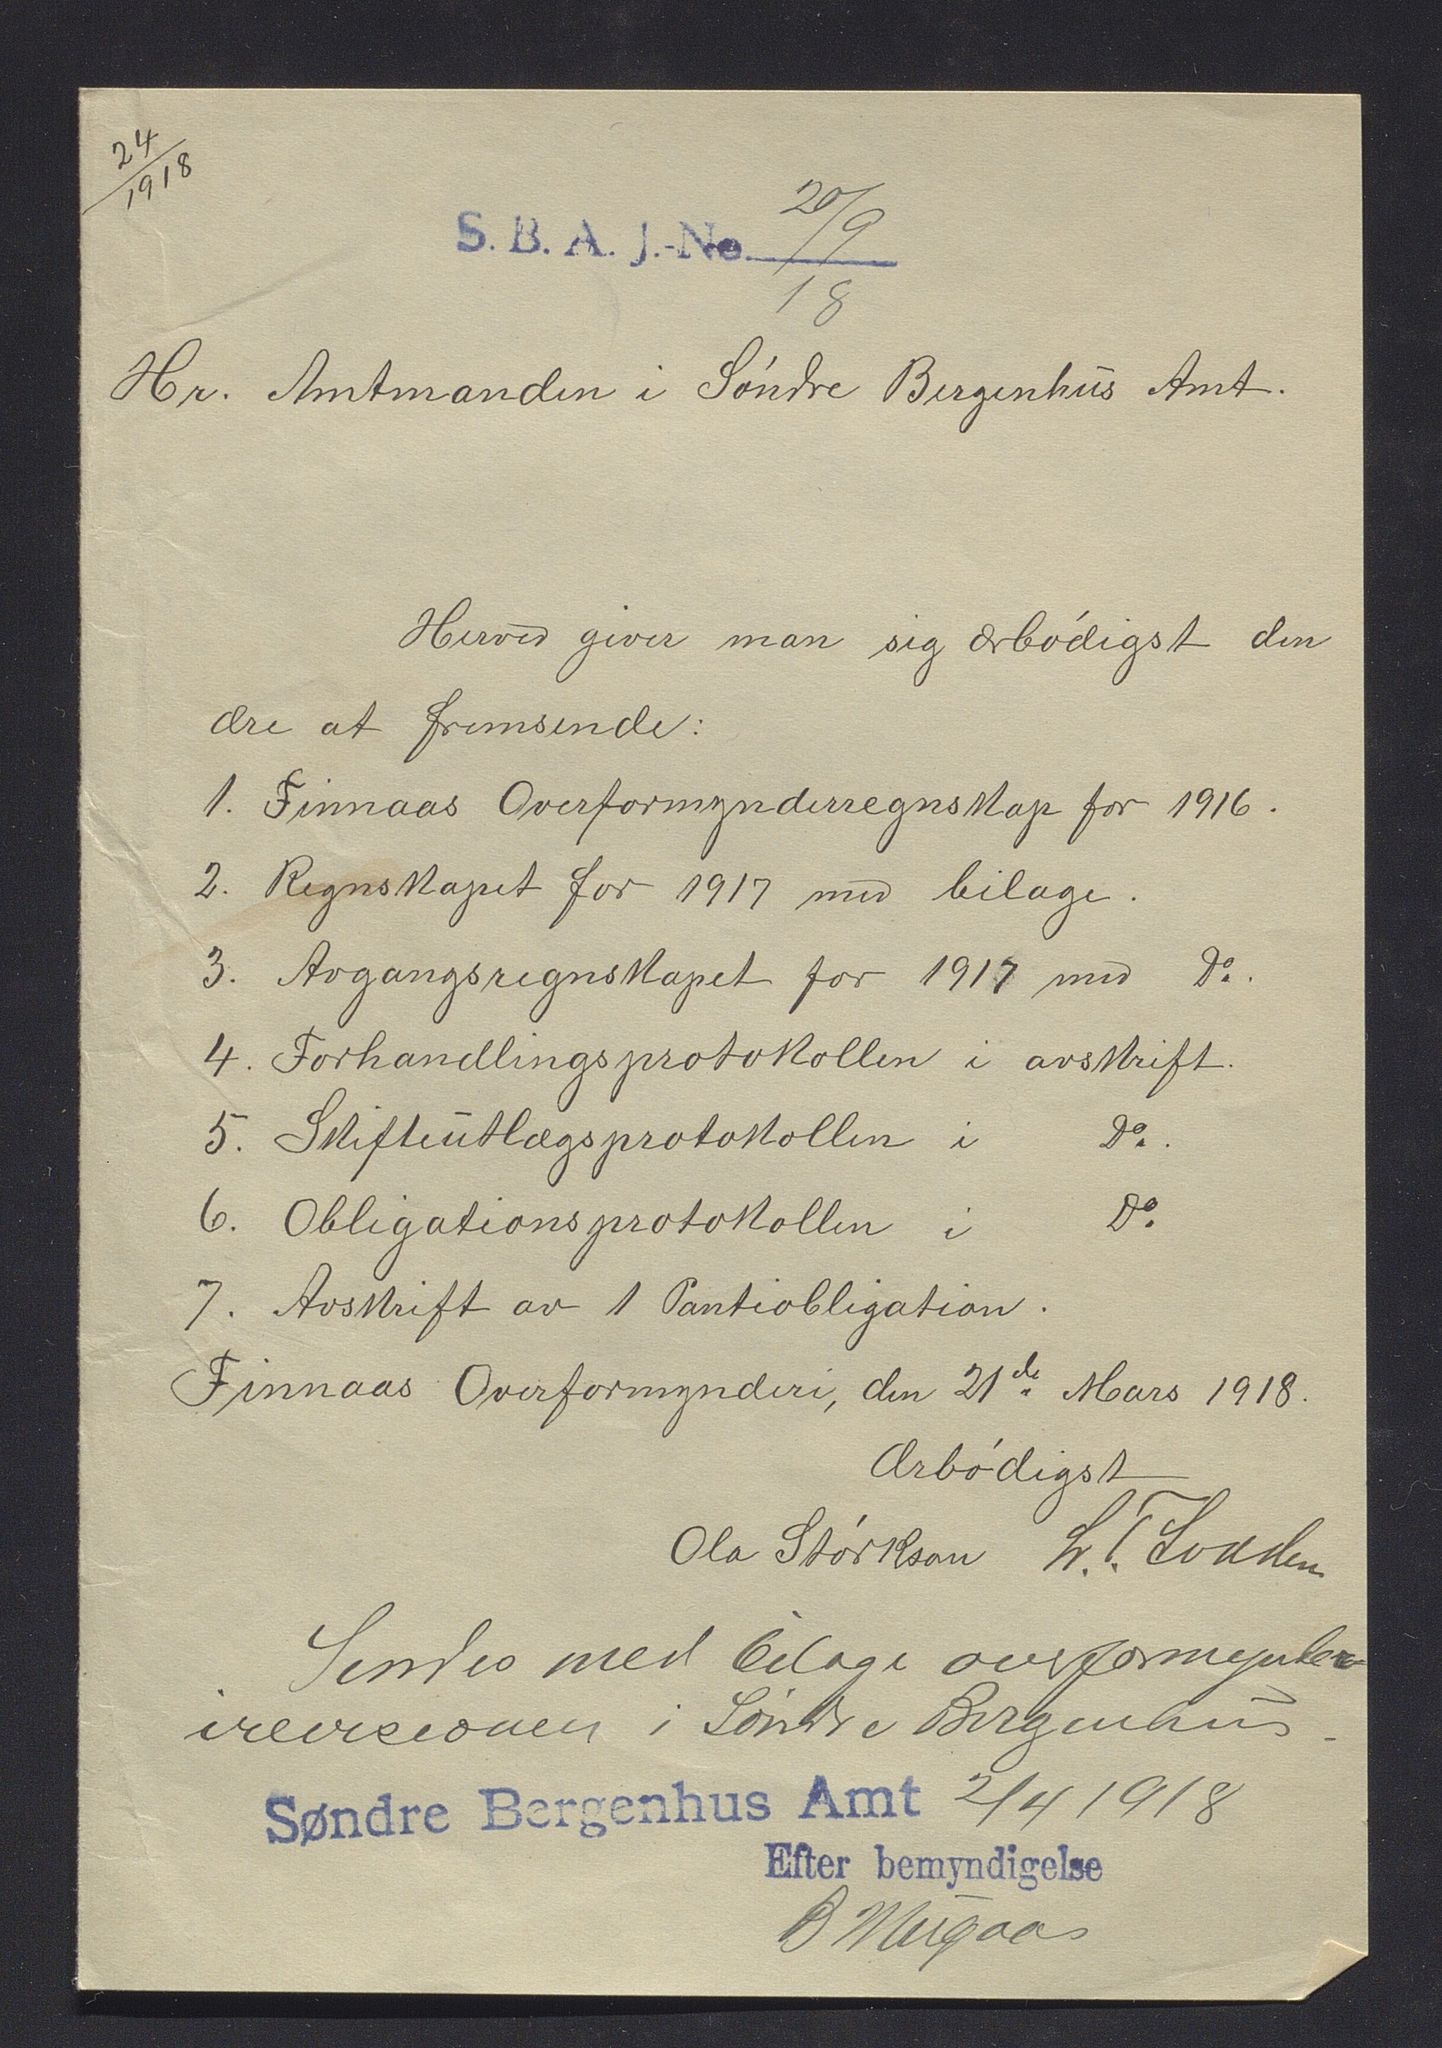 24
1918
S. B. A. J.-No. 20/9
18
Hr. Amtmanden i Søndre Bergenhus Amt.
Herved giver man sig ærbødigst den
ære at fremsende:
1. Finnaas Overformynderregnskap for 1916.
2. Regnskapet for 1917 med bilage.
3. Avgangsregnskapet for 1917 med Do.
4. Forhandlingsprotokollen i avskrift.
5. Skifteutlægsprotokollen i Do.
6. Obligationsprotokollen i Do
7. Avskrift av 1 Pantiobligation.
Finnaas Overformynderi, den 21de Mars 1918.
Ærbødigst
Ola Størkson
Sendes med bilage overformynder
irevisionen i Søndre Bergenhus.
Søndre Bergenhus Amt 2/4 1918
Efter bemyndigelse